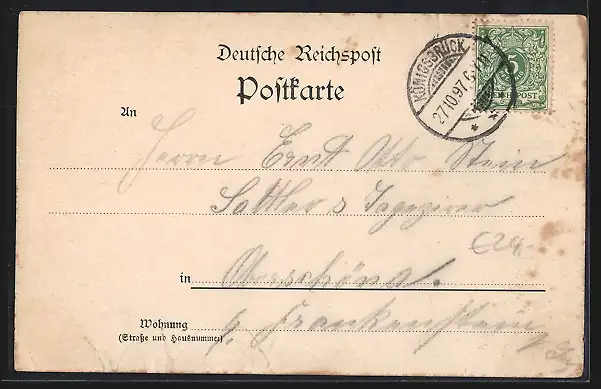 Deutsche Reichspost
Postkarte
KÖNIGSBRÜCK
27.10.97.
5
REICHSPOST
An
Herrn Ernst Otto Stein
Sattler & Tapezirer
€24,-
in Oberschöna.
Wohnung p. Frankenstein
(Straße und Hausnummer)